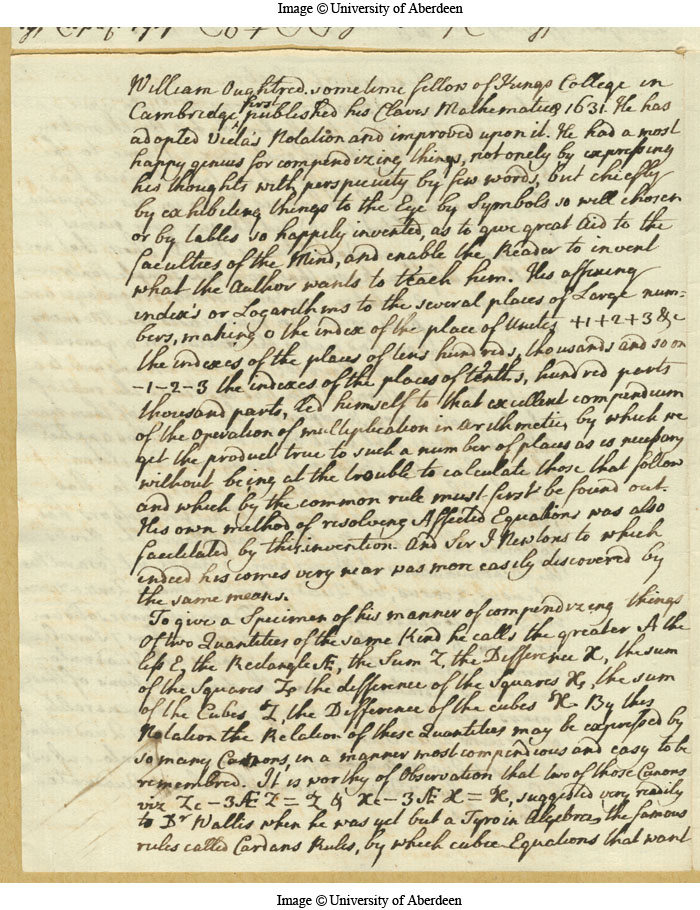 Image © University of Aberdeen
William Oughtred. sometime fellow of Kings College in
Cambridge first published his Clavis Mathematicæ 1631. He has
adopted Vieta's Notation and improved upon it. He had a most
happy genius for compendizing things, not onely by expressing
his thoughts with perspicuity by few words, but chiefly
by exhibiting things to the Eye by Symbols so well chosen
or by tables so happily invented, as to give great Aid to the
faculties of the Mind, and enable the Reader to invent
what the Author wants to teach him. His affixing
index's or Logarithms to the several places of Large num-
bers, making 0 the index of the place of Unites +1+2+3 &c
the indexes of the places of tens hundreds, thousands and so on
-1-2-3 the indexes of the places of tenths, hundred parts
thousand parts, led himself to that excellent compendium
of the operation of multiplication in arithmetic, by which we
get the product true to such a number of places as is necessary
without being at the trouble to calculate those that follow
and which by the common rule must first be found out.
His own method of resolving Affected Equations was also
facilitated by this invention. And Sir I Newtons to which
indeed his comes very near was more easily discovered by
the same means.
To give a Specimen of his manner of compendizing things
Of two Quantities of the same Kind he calls the greater A the
less E, the Rectangle Æ, the Sum Z, the Difference X, the sum
of the Squares the difference of the Squares the sum
of the Cubes the Difference of the cubes By this
Notation the Relation of these Quantities may be expressed by
so many Canons, in a manner most compendious and easy to be
remembred. It is worthy of Observation that two of those Canons
viz Zc - 3ÆZ = & Xc - 3ÆX = suggested very readily
to Dr Wallis when he was yet but a Tyro in Algebra, the famous
rules called Cardans Rules, by which cubic Equations that want
Image © University of Aberdeen